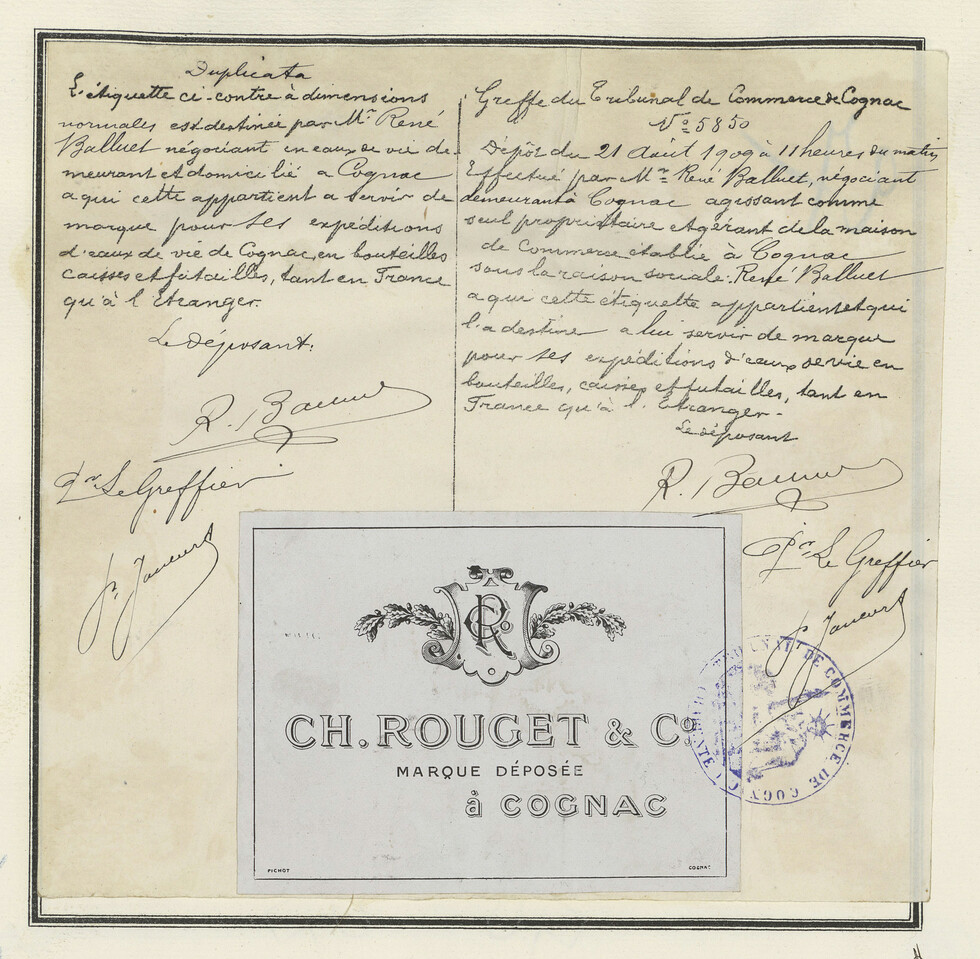 Duplicata
L'étiquette ci-contre à dimensions
normales est destinée par Mr René
Balluet négociant en eaux de vie de-
meurant et domicilié a Cognac
a qui cette appartient a servir de
marque pour ses expéditions
d'eaux de vie de Cognac, en bouteilles
caisses et futailles, tant en France
qu'à l'Etranger.
Le déposant.
R.
Pr Le Greffier
Greffe du Tribunal de Commerce de Cognac
No 5850
Dépôt du 21 Août 1909 à 11 heures du matin
Effectué par Mr René Balluet, négociant
demeurant à Cognac agissant comme
seul propriétaire et gérant de la maison
de Commerce établie à Cognac
sous la raison sociale: René Balluet
a qui cette étiquette appartient et qui
l'a destine a lui servir de marque
pour ses expéditions d'eaux de vie en
bouteilles, caisses et futailles, tant en
France qu'à l'Etranger-
Le déposant
R.
Pr Le Greffier
CRCo
CH. ROUGET & Co
MARQUE DÉPOSÉE
à COGNAC
PICHOT COGNAC
TRIBUNAL DE COMMERCE DE COGNAC